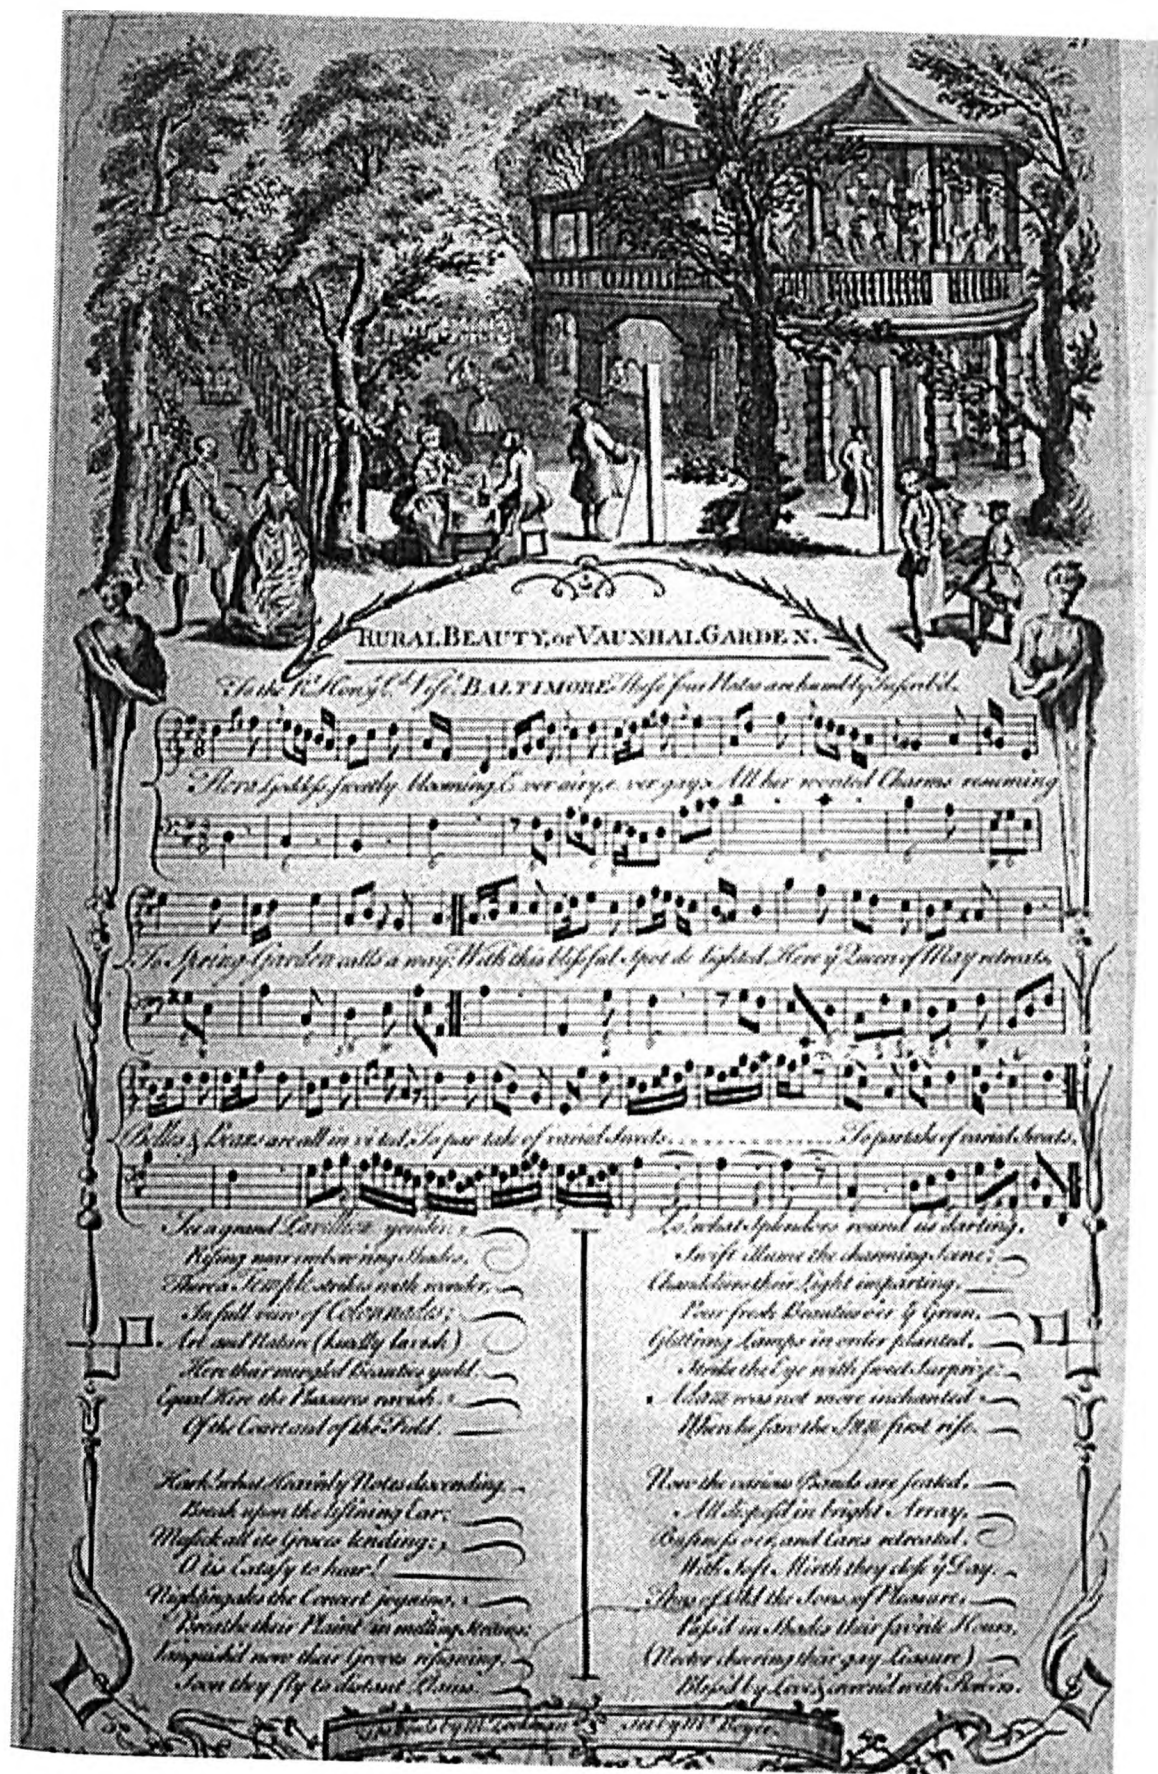 21
RURAL BEAUTY, or VAUXHAL GARDEN.
To the Rt. Honble. Ld. Visct. BALTIMORE These few Notes are humbly Inscrib'd.
Flora Goddess sweetly blooming, E ver airy, e ver gay; All her wonted Charms resuming
To Spring-Garden calls a way: With this blissful Spot de lighted, Here ye Queen of May retreats,
Belles & Beaus are all in vi ted, To par take of varied Sweets. . . . . . . . . . . . To partake of varied Sweets.
See a grand Pavillion yonder,
Rising near embow'ring Shades,
There a Temple strikes with wonder,
In full view of Colonnades;
Art and Nature (kindly lavish)
Here their mingled Beauties yield.
Equal Here the Pleasures ravish,
Of the Court and of the Field.
Hark! what Heav'nly Notes descending,
Break upon the list'ning Ear;
Musick all its Graces lending;
O tis Extasy to hear!
Nightingales the Concert joyning,
Breathe their Plaint in melting Strains;
Vanquish'd now their Groves resigning,
Soon they fly to distant Plains.
Lo! what Splendors round us darting,
Swift illume the charming Scene;
Chandeliers their Light imparting,
Pour fresh Beauties o'er ye Green,
Glitt'ring Lamps in order planted,
Strike the Eye with sweet Surprize;
Adam was not more inchanted
When he saw the Sun first rise.
Now the various Bands are seated,
All dispos'd in bright Array,
Business o'er, and Cares retreated,
With Soft Mirth they close ye Day.
Thus of Old the Sons of Pleasure
Pass'd in Shades their fav'rite Hours,
(Nectar cheering their gay Leisure)
Bless'd by Love, & crown'd with Flowers.
The Words by Mr. Lockman Set by Mr. Boyce.